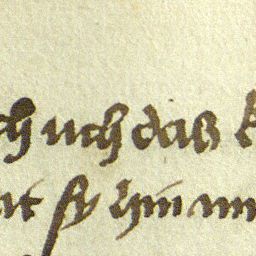 ch uch das
at sy hin